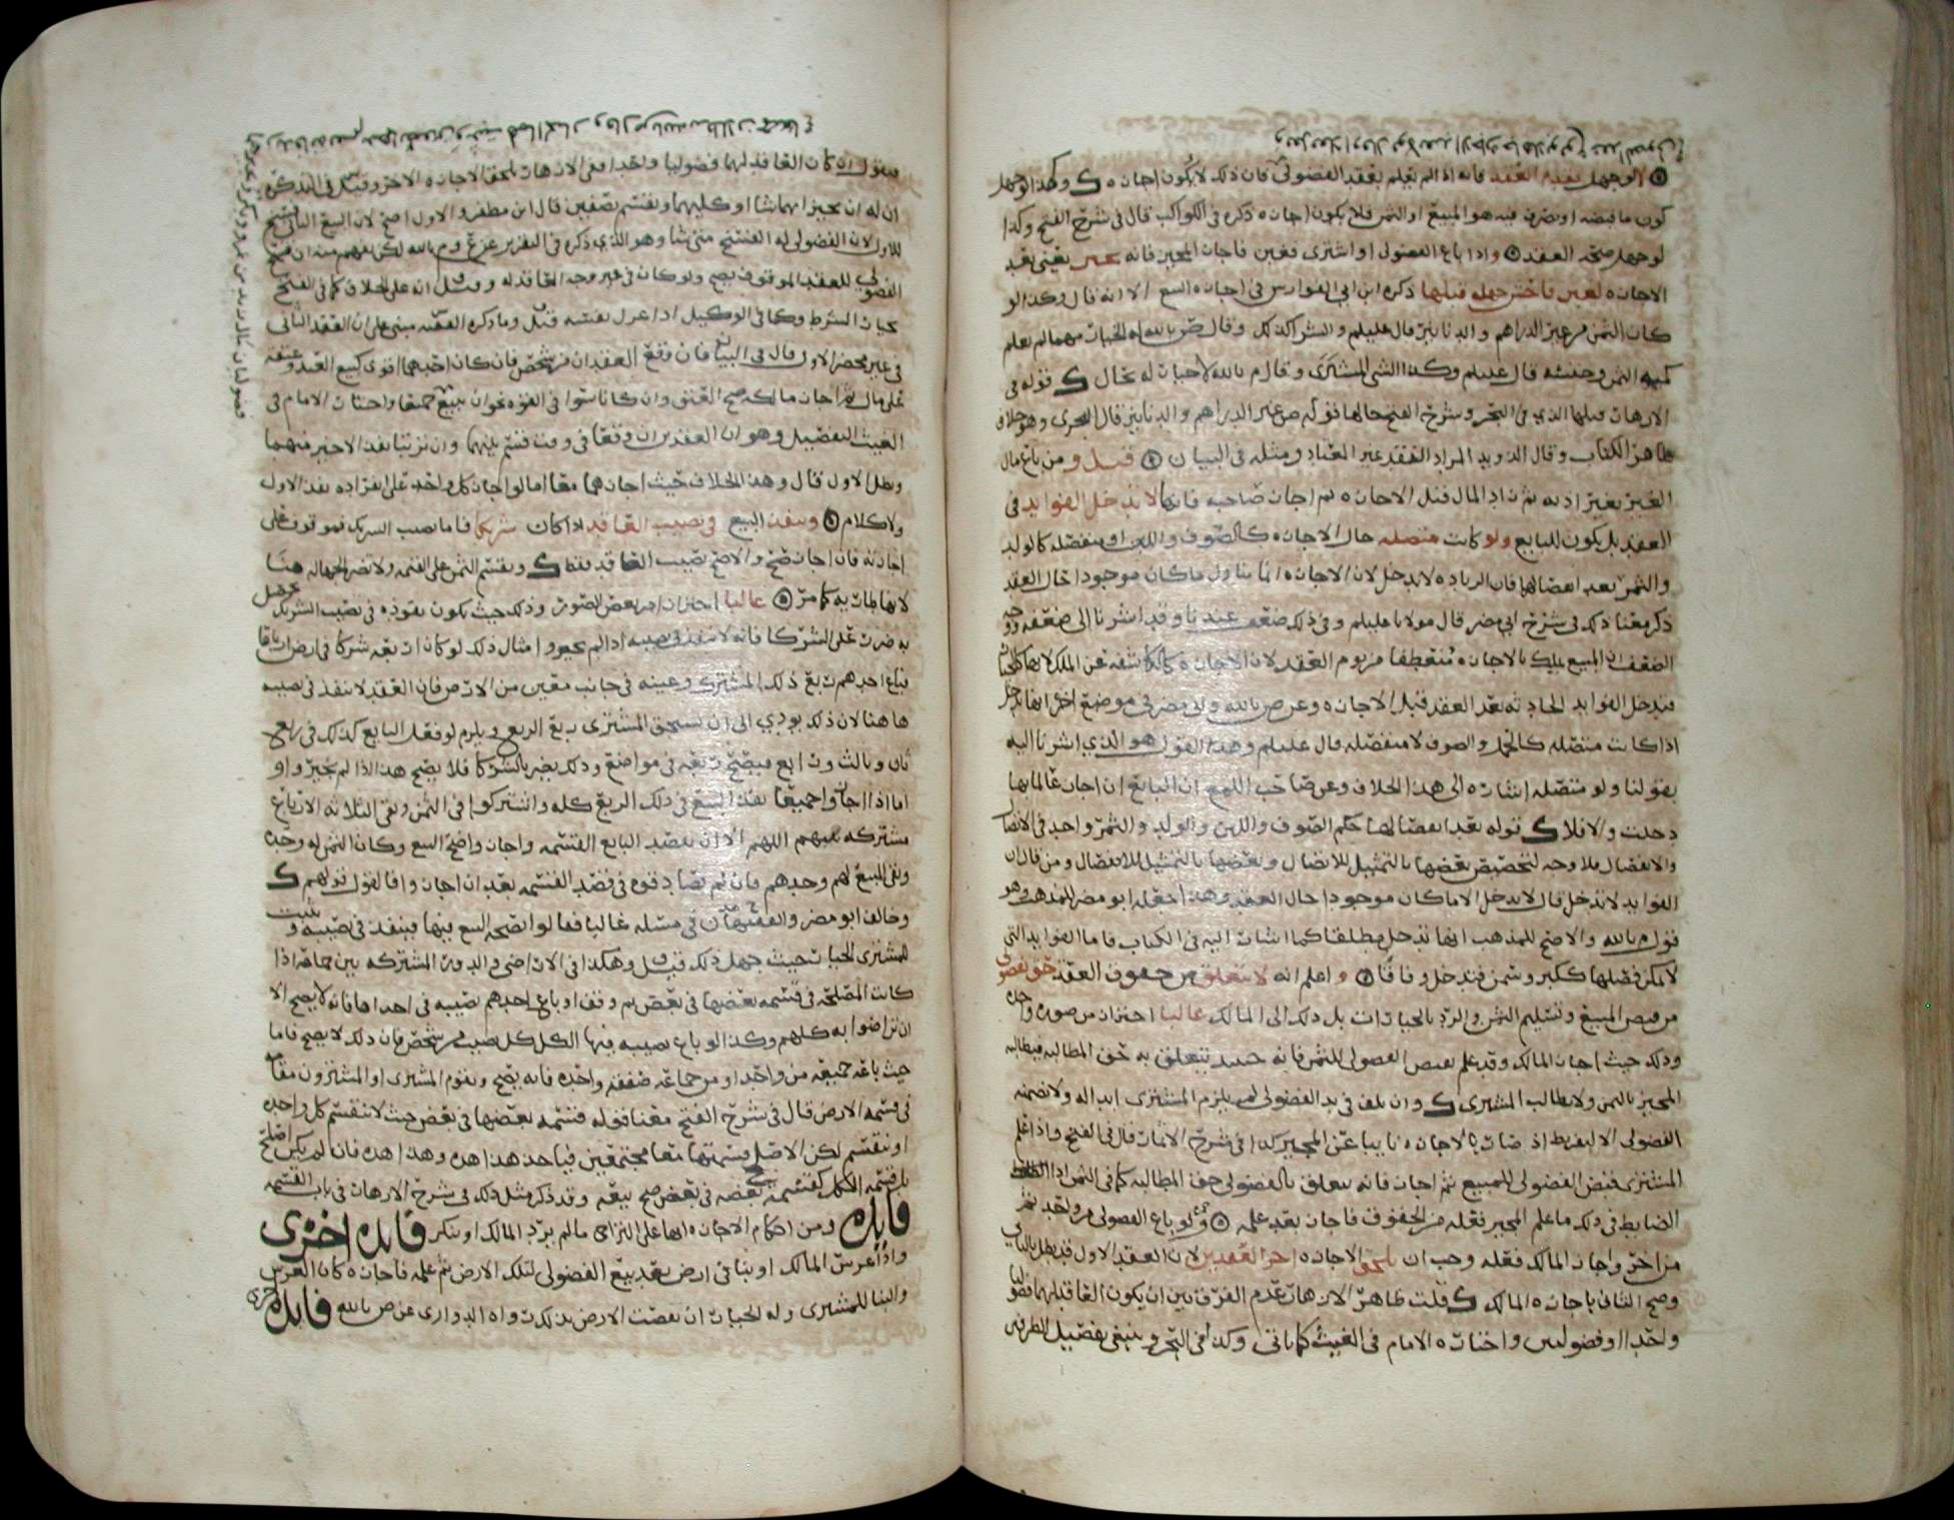 او جهل تقدم العقد فانه اذا لم يعلم بعقد الفضولي فان ذلك لا يكون اجازه ك وكذا لو جهل
كون ما قبضه او تصرف فيه هو المبيع او الثمن فلا يكون اجازه ذكره في الكواكب قال في شرح الفتح وكذا
لو جهل صحة العقد واذا باع الفضولي او اشترى فغبن فاجاز المجيز فانه يخير يعني بعد
الاجازه لغبن فاحش جهله قبلها ذكره ابن ابي الفوارس في اجازه البيع الا انه قال وكذا لو
كان الثمن من غير الدراهم والدنانير قال عليلم والشرا كذلك وقال ص بالله له الخيار مهما لم يعلم
كميه الثمن وجنسه قال عليلم وكذا الشي المشترى وقال م بالله لا خيار له بحال ك قوله في
الازهار قبلها الذي في البحر وشرح الفتح حالها قوله من غير الدراهم والدنانير قال البحري وهو خلاف
ظاهر الكتاب وقال الدويد المراد النقد غير المعتاد ومثله في البيان قيل و من باع مال
الغير بغير اذنه ثم زاد المال قبل الاجازه ثم اجاز صاحبه فانها لا تدخل الفوايد في
العقد بل يكون للبايع ولو كانت متصله حال الاجازه كالصوف واللبن او منفصله كالولد
والثمر بعد انفصالها فان الزياده لا تدخل لان الاجازه انما تناول ما كان موجودا حال العقد
ذكر معنا ذلك في شرح ابي مضر قال مولانا عليلم وفي ذلك ضعف عندنا وقد اشرنا الى ضعفه ووجه
الضعف ان المبيع يملك بالاجازه منعطفا من يوم العقد لان الاجازه كالكاشفه عن الملك
فتدخل الفوايد الحادثه بعد العقد قبل الاجازه وعن ص بالله وابي مضر في موضع اخر انها تدخل
اذا كانت متصله كالحمل والصوف لا منفصله قال عليلم وهذا القول هو الذي اشرنا اليه
بقولنا ولو متصله اشاره الى هذا الخلاف وعن صاحب اللمع ان البايع ان اجاز عالما بها
دخلت والا فلا ك قوله بعد انفصالها حكم الصوف واللبن والولد والثمر واحد في الاتصال
والانفصال فلا وجه لتخصيص بعضها بالتمثيل للاتصال وبعضها بالتمثيل للانفصال ومن قال ان
الفوايد لا تدخل قال لا يدخل الا ما كان موجودا حال العقد وهذا جعله ابو مضر للمذهب وهو
قول م بالله والاصح للمذهب انها تدخل مطلقا كما اشار اليه في الكتاب فاما الفوايد التي
لا يمكن فصلها ككبر وسمن فتدخل وفاقا واعلم انه لا تتعلق من حقوق العقد حق بفضولي
من قبض المبيع وتسليم الثمن والرد بالخيارات بل ذلك الى المالك غالبا احتراز من صوره واحده
وذلك حيث اجاز المالك وقد علم بقبض الفضولي للثمن فانه حينئذ يتعلق به حق المطالبه فيطالبه
المجيز بالثمن ولا يطالب المشتري ك وان تلف في يد الفضولي لم يلزم المشتري ابداله ولا تضمنه
الفضولي الا لتفريط اذ صار بالاجازه نايبا عن المجيز كذا في شرح الاثمار قال في الفتح واذا علم
المشتري قبض الفضولي للمبيع ثم اجاز فانه يتعلق بالفضولي حق المطالبه كما في الثمن اذا
الضابط في ذلك ما علم المجيز فعله من الحقوق فاجاز بعد علمه ولو باع الفضولي من واحد ثم
من اخر واجاز المالك فعله وجب ان تلحق الاجازه اخر العقدين لان العقد الاول قد بطل بالثاني
وصح الثاني باجازه المالك ك قلت ظاهر الازهار عدم الفرق بين ان يكون العاقد لهما فضوليا
واحدا او فضوليين واختاره الامام في الغيث كما ياتي وكذا في البحر وينبغي تفصيل الطرفين
فيقول ان كان العاقد لهما فضوليا واحدا ففي الازهار تلحق الاجازه الاخر وقيل في التذكره
ان له ان يجيز ايهما شا او كليهما ويقسم نصفين قال ابن مظفر والاول اصح لان البيع الثاني فسخ
للاول لان الفضولي له الفسخ متى شا وهو الذي ذكره في التقرير عن ع وم بالله لكن يفهم منه ان فسخ
الفضولي للعقد الموقوف يصح ولو كان في غير وجه العاقد له وقيل انه على الخلاف كما في الفسخ
بخيار الشرط وكما في الوكيل اذا عزل نفسه قيل وما ذكره الفقيه مبني على ان العقد الثاني
في غير محضر الاول قال في البيان فان وقع العقدان من شخص فان كان احدهما اقوى كبيع العبد وعتقه
على مال ثم اجاز مالكه صح العتق وان كانا سوا في القوه نحو ان يبيع جميعا واختار الامام في
الغيث التفصيل وهو ان العقدين ان وقعا في وقت قسم بينهما وان ترتبا نفذ الاخير منهما
وبطل الاول قال وهذا الخلاف حيث اجازهما معا اما لو اجاز كل واحد على انفراده نفذ الاول
ولا كلام وينفذ البيع في نصيب العاقد اذا كان شريكا فاما نصيب الشريك فموقوف على
اجازته فان اجاز صح والا صح نصيب العاقد فقط ك ويقسم الثمن على القيمه ولا تضر الجهاله هنا
لانها طاريه كما مر غالبا احتراز من بعض الصور وذلك حيث يكون نفوذه في نصيب الشريك
به ضرر على الشركا فانه لا ينفذ في نصيبه اذا لم يجيزوا مثال ذلك لو كان اربعه شركا في ارض ارباعا
فباع احدهم ربع ذلك المشترك وعينه في جانب معين من الارض فان العقد لا ينفذ في نصيبه
هاهنا لان ذلك يودي الى ان يستحق المشتري ربع الربع ويلزم لو فعل البايع كذلك في ربع
ثان وثالث ورابع فيصح ربعه في مواضع وذلك يضر بالشركا فلا يصح هذا اذا لم يجيزوا
اما اذا اجازوا جميعا نفذ البيع في ذلك الربع كله واشتركوا في الثمن وبقي الثلاثه الارباع
مشتركه بينهم اللهم الا ان يقصد البايع القسمه واجازوا صح البيع وكان الثمن له وحده
وبقي المبيع لهم وحدهم فان لم تصادقوه في قصد القسمه بعد ان اجازوا فالقول قولهم ك
وخالف ابو مضر والفقيهان في مسئله غالبا فقالوا تصحه البيع فيها فينفذ في نصيبه ويثبت
للمشتري الخيار حيث جهل ذلك قيل وهكذا في الاراضي والدور المشتركه بين جماعه اذا
كانت المصلحه في قسمه بعضها في بعض ثم وقف او باع احدهم نصيبه في احداها فانه لا يصح الا
ان تراضوا به كلهم وكذا لو باع نصيبه فيها الكل كل نصيب من شخص فان ذلك لا يصح فاما
حيث باعه جميعه من واحد او من جماعه صفقه واحده فانه يصح ويقوم المشتري او المشترون مقامه
في قسمه الارض قال في شرح الفتح معنا قوله قسمه بعضها في بعض حيث لا تنقسم كل واحده
او تنقسم لكن الاصلح قسمتها معا مجتمعين فياخذ هذا هذه وهذا هذه فان لم يكن اصلح
بل قسمه الكل كقسمه بعضه في بعض صح بيعه وقد ذكر مثل ذلك في شرح الازهار في باب القسمه
فايده ومن احكام الاجازه انها على التراخي ما لم يرد المالك او ينكر فايده اخرى
واذا غرس المالك او بنا في ارض بعد بيع الفضولي لتلك الارض ثم علمه فاجازه كان الغرس
والبنا للمشتري وله الخيار ان نقصت الارض بذلك رواه الدواري عن ص بالله فايده اخرى